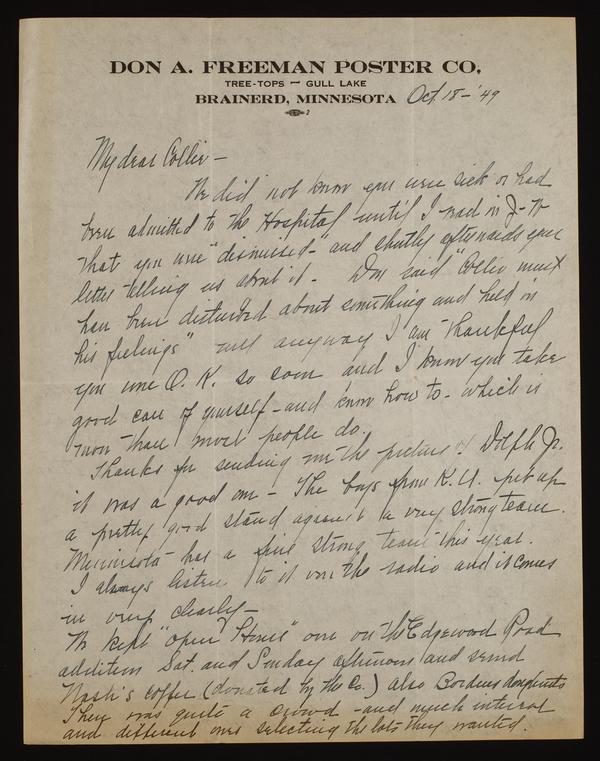 DON A. FREEMAN POSTER CO.
TREE-TOPS — GULL LAKE
BRAINERD, MINNESOTA Oct. 18 - '49
My dear Collie -
We did not know you were sick or had
been admitted to the Hospital until I read in J-W
that you were "dismissed -" and shortly afterwards your
letter telling us about it - Don said "Collie must
have been disturbed about something and held in
his feelings" anyway I am thankful
you were O. K. so soon and I know you take
good care of yourself - and know how to - which is
more than most people do.
Thanks for sending me the picture of Dolph Jr.
it was a good one - The boys from K. U. put up
a pretty good stand against a very strong team.
Minnesota has a fine strong team this year.
I always listen to it on the radio and it comes
in very clearly -
We kept "Open House" over on the Edgewood Road
addition Sat. and Sunday afternoons and served
Nash's coffee (donated by the Co.) also Bordens doughnuts
There was quite a crowd - and much interest
and different ones selecting the lots they wanted.